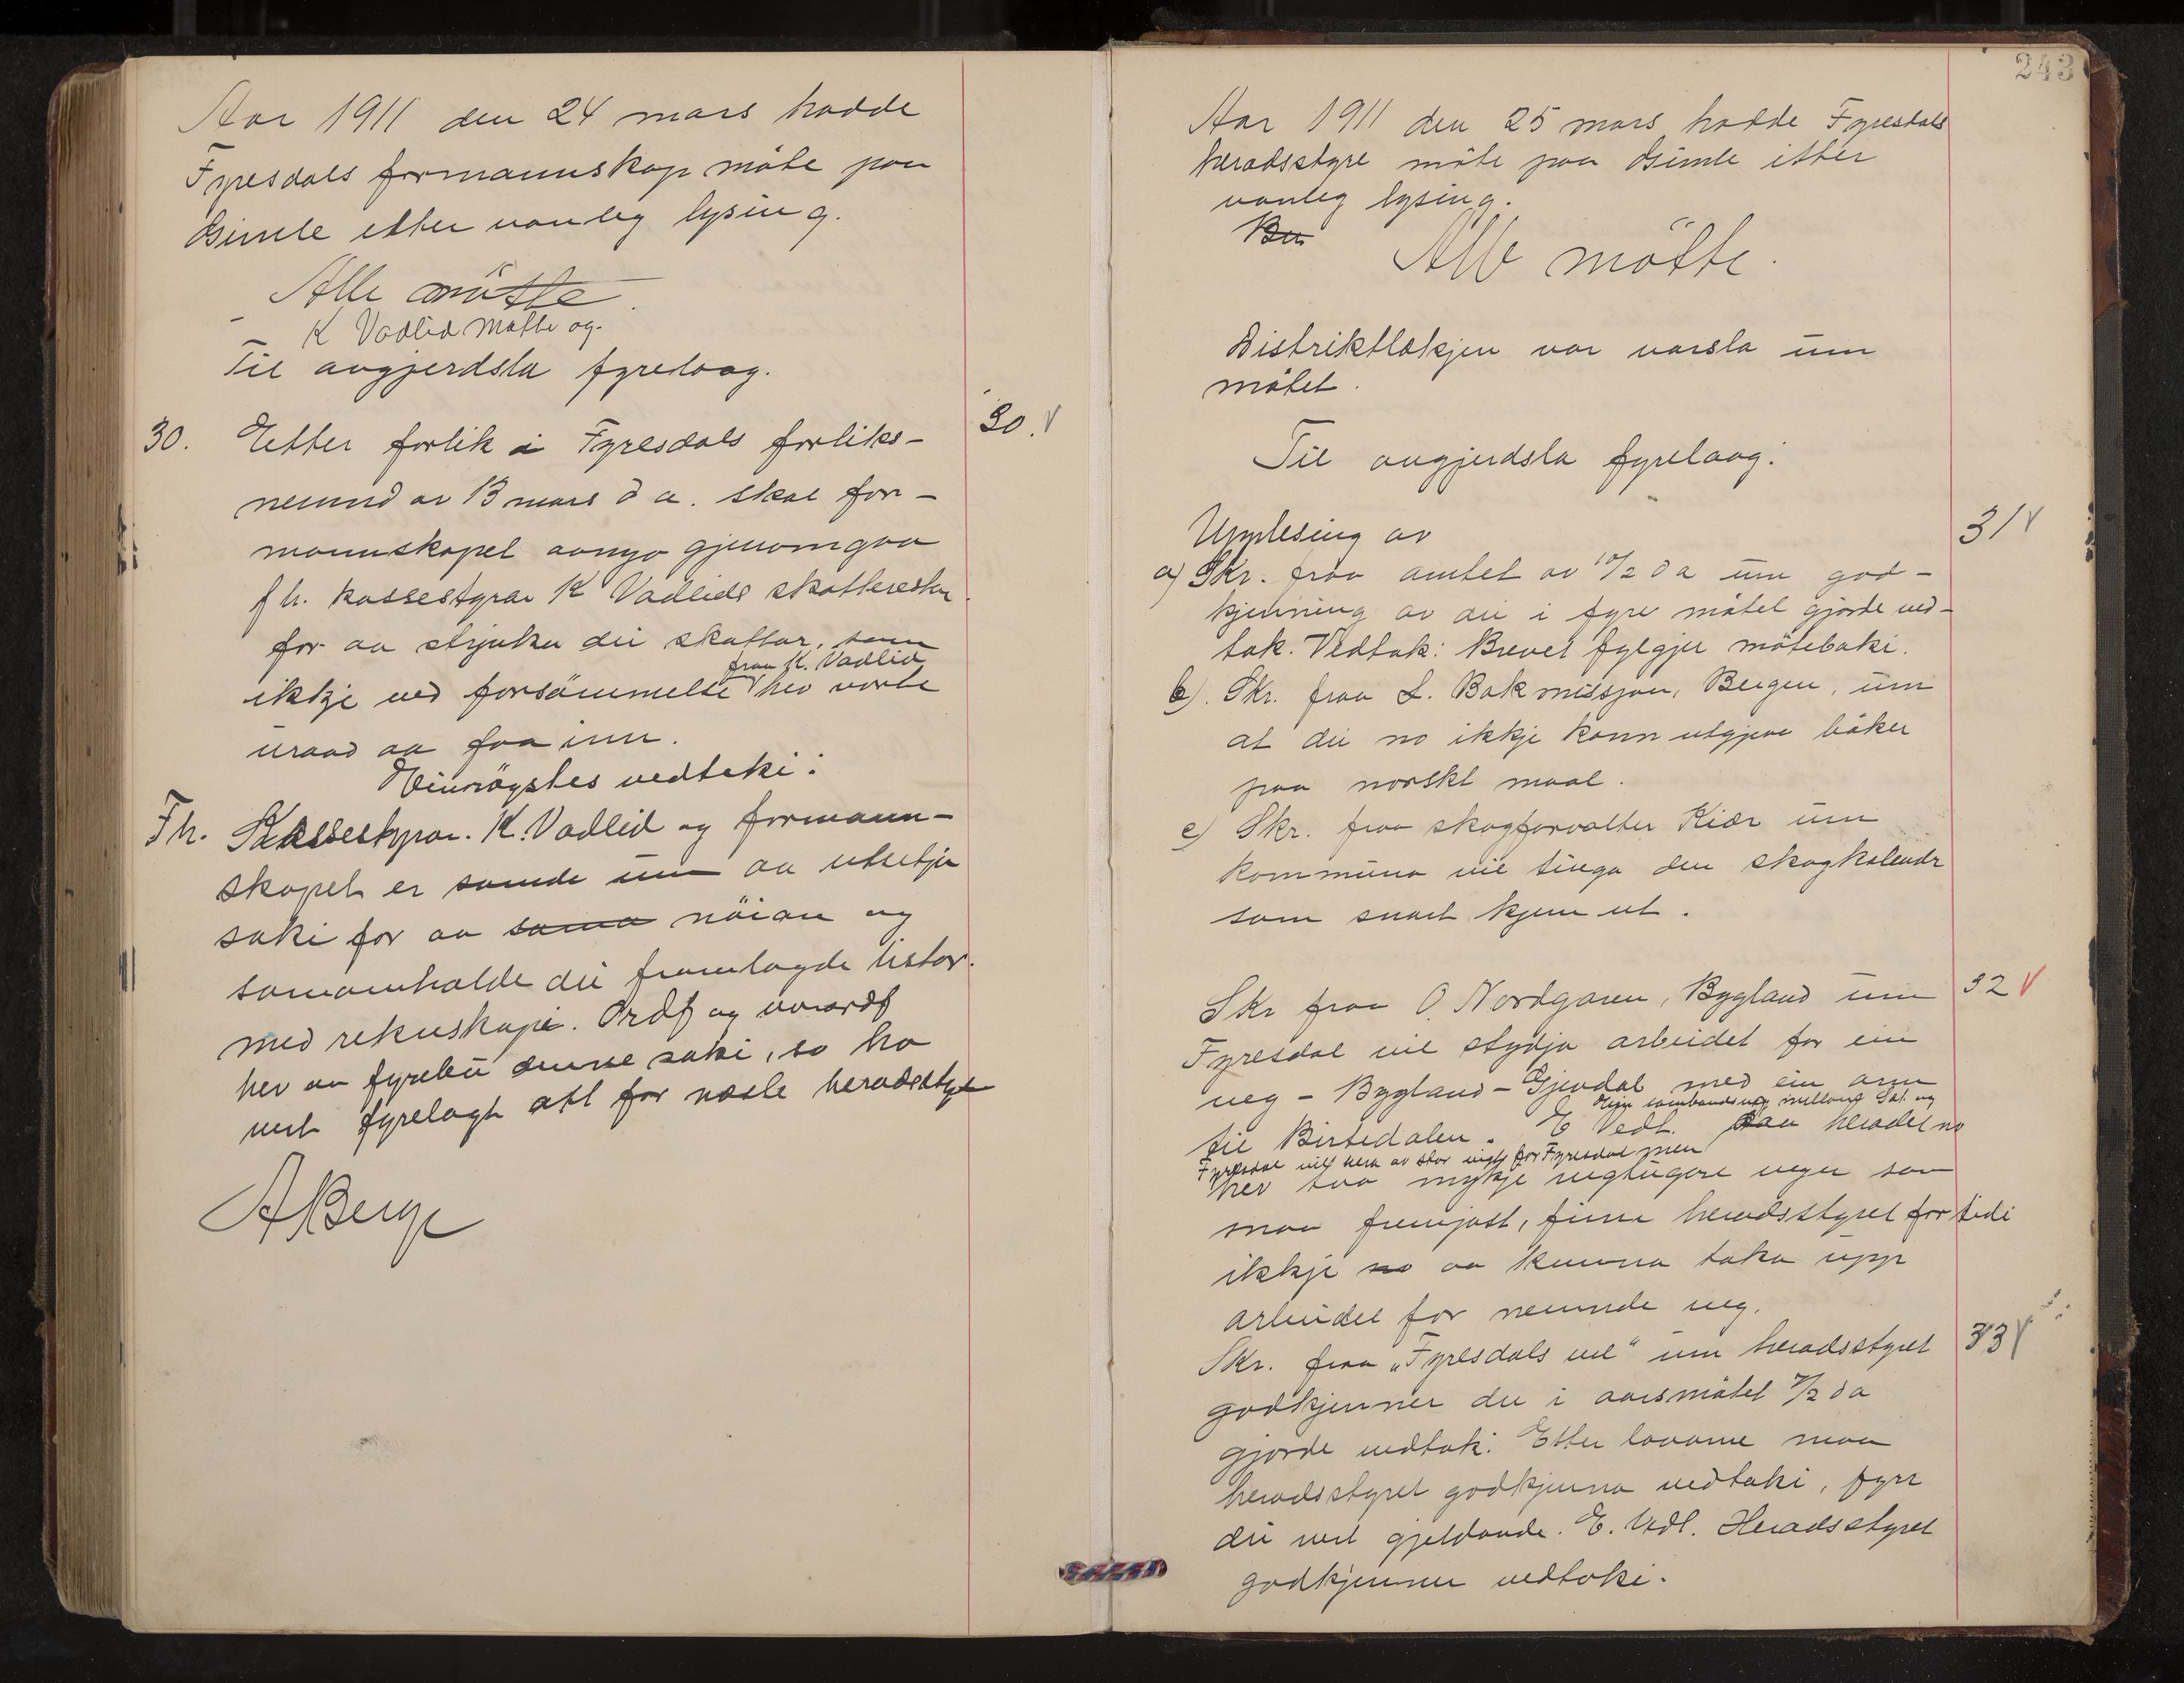 Aar 1911 den 24 mars hadde
Fyresdals formannskap möte paa
Gimle etter vanleg lysing.
Alle mötte.
K Vadlid mötte og.
Til avgjerdsla fyrelaag.
30. Etter forlik i Fyresdals forliks-
30.
nemnd av 13 mars d a. skal for-
mannskapet aanyo gjenomgaa
fh. kassestyrar K Vadlids skatterestar
for aa stryka dei skattar, som
fraa K. Vadlid
ikkje ved forsömmelse hev vorte
uraad aa faa inn.
Einrögstes vedteki:
Fh. Kassestyrar. K. Vadlid og formann-
skapet er samde um aa utsetja
saki for aa sama nöiare og
samanhalde dei framlagde listor.
med rekneskapi. Ordf og varaordf
hev aa fyrebu denne saki, so ho
vert fyrelagt att for næste heradsstyre
A Berge
243
Aar 1911 den 25 mars hadde Fyresdals
heradsstyre möte paa Gimle etter
vanleg lysing.
Alle mötte.
Distriktlækjen var varsla um
mötet.
Til avgjerdsla fyrelaag:
Upplesing av
31
a) Skr. fraa amtet av 10/2 d a um god-
kjenning av dei i fyre mötet gjorde ved-
tak. Vedtak: Brevet fylgjer mötebaki.
b). Skr. fraa L. Bokmissjon, Bergen, um
at dei no ikkje kann utgjeve böker
paa norskt maal.
c) Skr. fraa skogforvalter Kiær um
kommuna vil tinga den skogkalendr
som snart kjem ut.
Skr fraa O. Nordgaren, Bygland um
32
Fyresdal vil stydja arbeidet for ein
veg - Bygland - Gjevdal med ein arm
Ein sambandsveg millom Sæt. og
til Birtedalen. E Vedt. Daa heradet no
Fyresdal vil vera av stor vigt for Fyresdal men
hev so mykje vegtugare vegar som
maa fremjast, finn heradsstyret for tidi
ikkje no aa kunna taka upp
arbeidet for nemnde veg.
Skr. fraa „Fyresdals vel" um heradsstyret
33
godkjenner dei i aarsmötet 7/2 d a
gjorde vedtak. Etter lovarne maa
heradsstyret godkjenna vedtaki, fyrr
dei vert gjeldande. E. Vedt. Heradsstyret
godkjenner vedtaki.